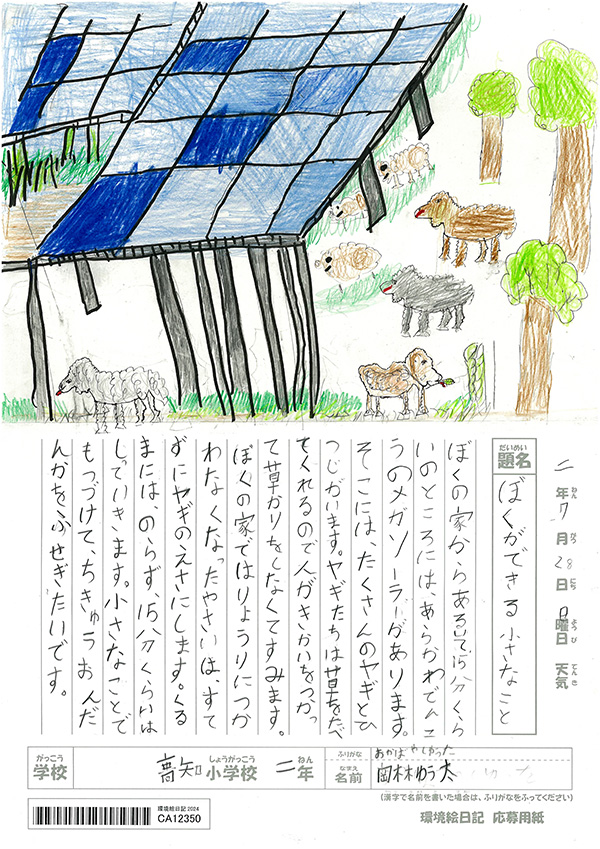 二年7月28日日曜日 天気
ねん がつ にち ようび てんき
だいめい
題名 ぼくができる小さなこと
ぼくの家からあるいて15分くら
いのところには、あらかわでんこ
うのメガソーラーがあります。
そこには、たくさんのヤギとひ
つじがいます。ヤギたちは草をたべ
てくれるので人がきかいをつかっ
て草かりをしなくてすみます。
ぼくの家ではりょうりにつか
わなくなったやさいは、すて
ずにヤギのえさにします。くる
まには、のらず、15分くらいは
しっていきます。小さなことで
もつづけて、ちきゅうおんだ
んかをふせぎたいです。
がっこう しょうがっこう ねん
学校 音知小学校 二年
ふりがな おかばやしゆうた
なまえ
名前 岡林ゆう太
(漢字で名前を書いた場合は、ふりがなをふってください)
環境絵日記 2024
CA12350
環境絵日記 応募用紙